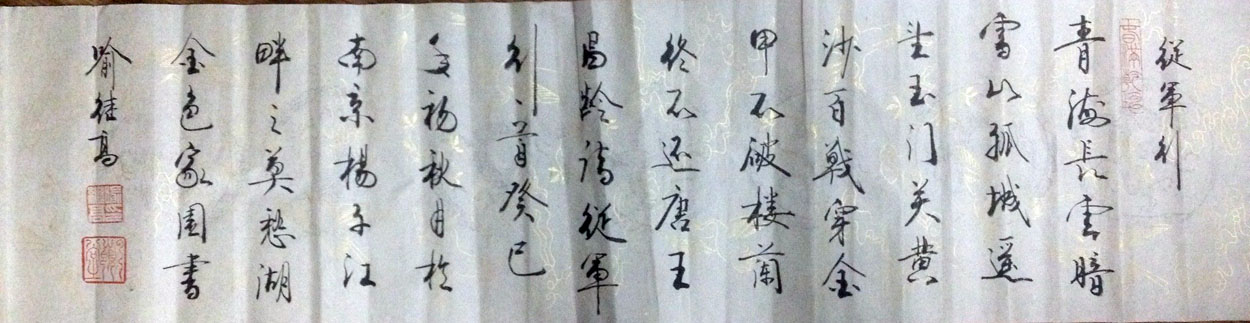 從軍行
青海長雲暗
雪山孤城遥
望玉门关黄
沙百戰穿金
甲不破楼蘭
终不还唐王
昌龄诗從軍
行一首癸巳
初秋月於
南京楊子江
畔之莫愁湖
金色家園書
喻继高